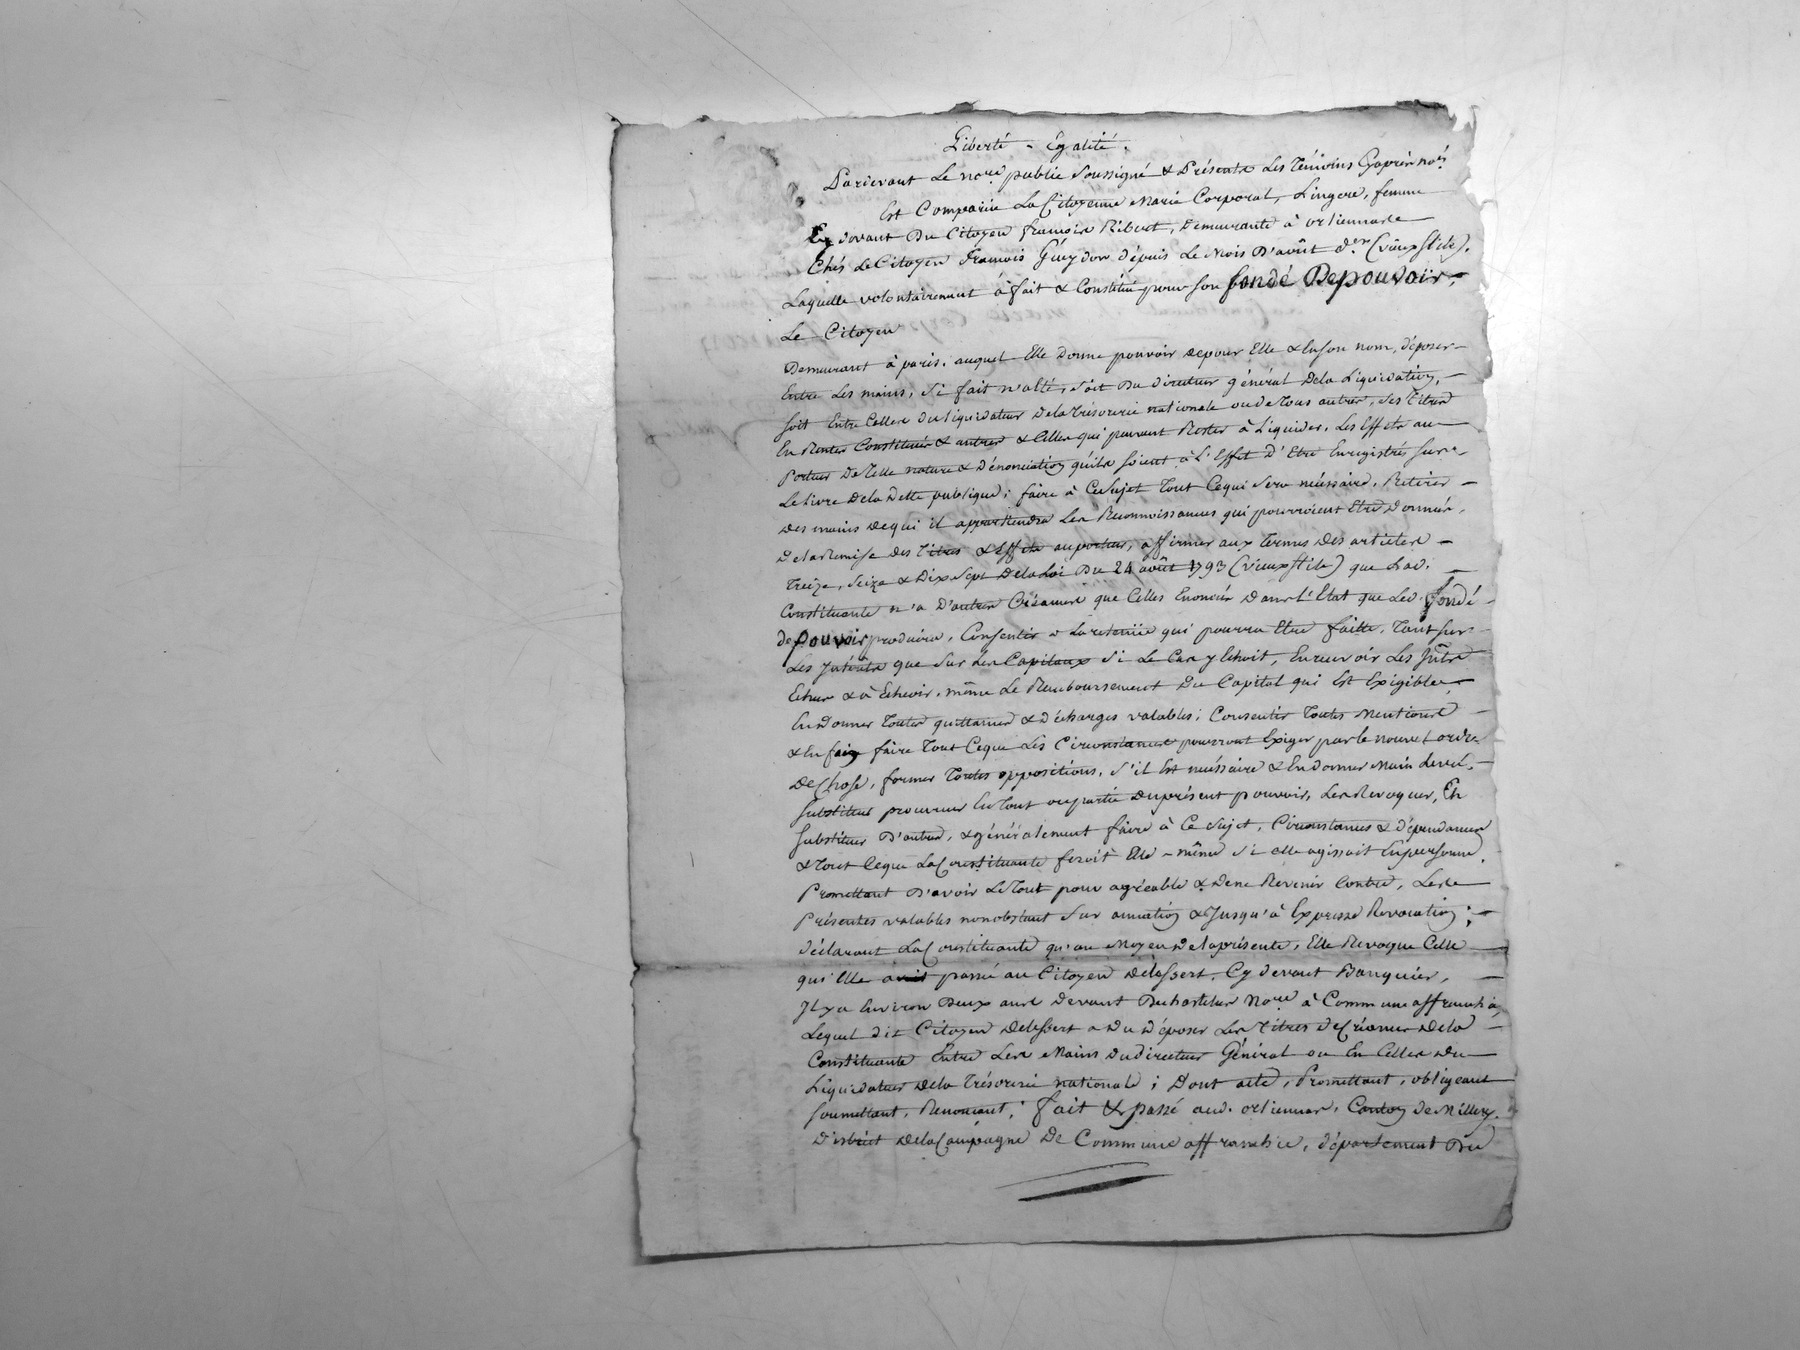 Liberté - Egalité.
Pardevant Le no.re public Soussigné & Présents Les Témoins Cyaprès nom.és
Est Comparüe La Citoyenne Marie Corporat, Lingere, femme
Cy devant Du Citoyen françois Ribert, Demeurante à orliennarde
Chés Le Citoyen françois Guydon dépuis Le Mois D'août d.er (vieux stile).
Laquelle volontairement à fait & Constitué pour Son fondé De pouvoir,
Le Citoyen
Demeurant à paris. auquel Elle Donne pouvoir de pour Elle & En son nom, déposer
Entre Les mains, Si fait n'a été, soit Du directeur général De la Liquidation,
soit Entre Celles du liquidateur De la trésorerie nationale ou de Tous autres, Ses Titres
En Rentes Constituées & autres & Celles qui peuvent Rester à Liquider, Les Effets au
Porteur De Telle nature & Dénonciation qu'ils soient à L'Effet D'Etre Enregistrés sur
Le livre De la Dette publique; faire à Ce Sujet Tout Ce qui Sera nécéssaire, Retirer
Des mains De qui il appartiendra Les Reconnoissances qui pourroient Etre Donnés,
De la Remise Des Titres & Effets au porteur, affirmer aux termes Des articles
Treize, Seize & Dix Sept De la Loi Du 24 août 1793 (vieux stile) que Lad.
Constituante n'a D'autres Créances que Celles Enoncées Dans L'Etat que Led. fondé
de pouvoir produira, Consentir a La retenüe qui pourra Etre faitte, Tant sur
Les Intérêts que Sur Les Capitaux Si Le Cas y Echoit, En recevoir Les Intêts
Echus & à Echeoir, même Le Remboursement Du Capital qui Est Exigible,
En Donner Toutes quittances & Décharges valables; Consentir Toutes Mentions
& En faire Tout Ce que Les Circonstances pourront Exiger par le nouvel ordre
De Chose, former Toutes oppositions, S'il Est nécéssaire & En donner Main Levée,
Substituer procureur En Tout ou partie Du présent pouvoir, Les Revoquer, En
Substituer D'autres, & généralement faire à Ce Sujet, Circonstances & dépendances
& Tout Ce que La Constituante feroit Elle-même Si elle agissoit En personne,
Promettant D'avoir Le Tout pour agréable & De ne Revenir Contre, Les
Présentes valables nonobstant Sur annation & Jusqu'à Expresse Revocation;
déclarant La Constituante qu'au Moyen De la présente, Elle Revoque Celle
qu'Elle avoit passé au Citoyen Delessert, Cy devant Banquier,
Il y a Environ Deux ans Devant Duhortelus No.re à Commune affranchie,
Lequel dit Citoyen Delessert a Du Déposer Les Titres de Créance De la
Constituante Entre Les Mains du directeur Général ou En Celles Du
Liquidateur De la Trésorerie nationale; Dont acte, Promettant, obligeant
Soumettant, Renoncant; fait & passé aud. orliennas, Canton de Millery.
District De la Campagne De Commune affranchie, département Du